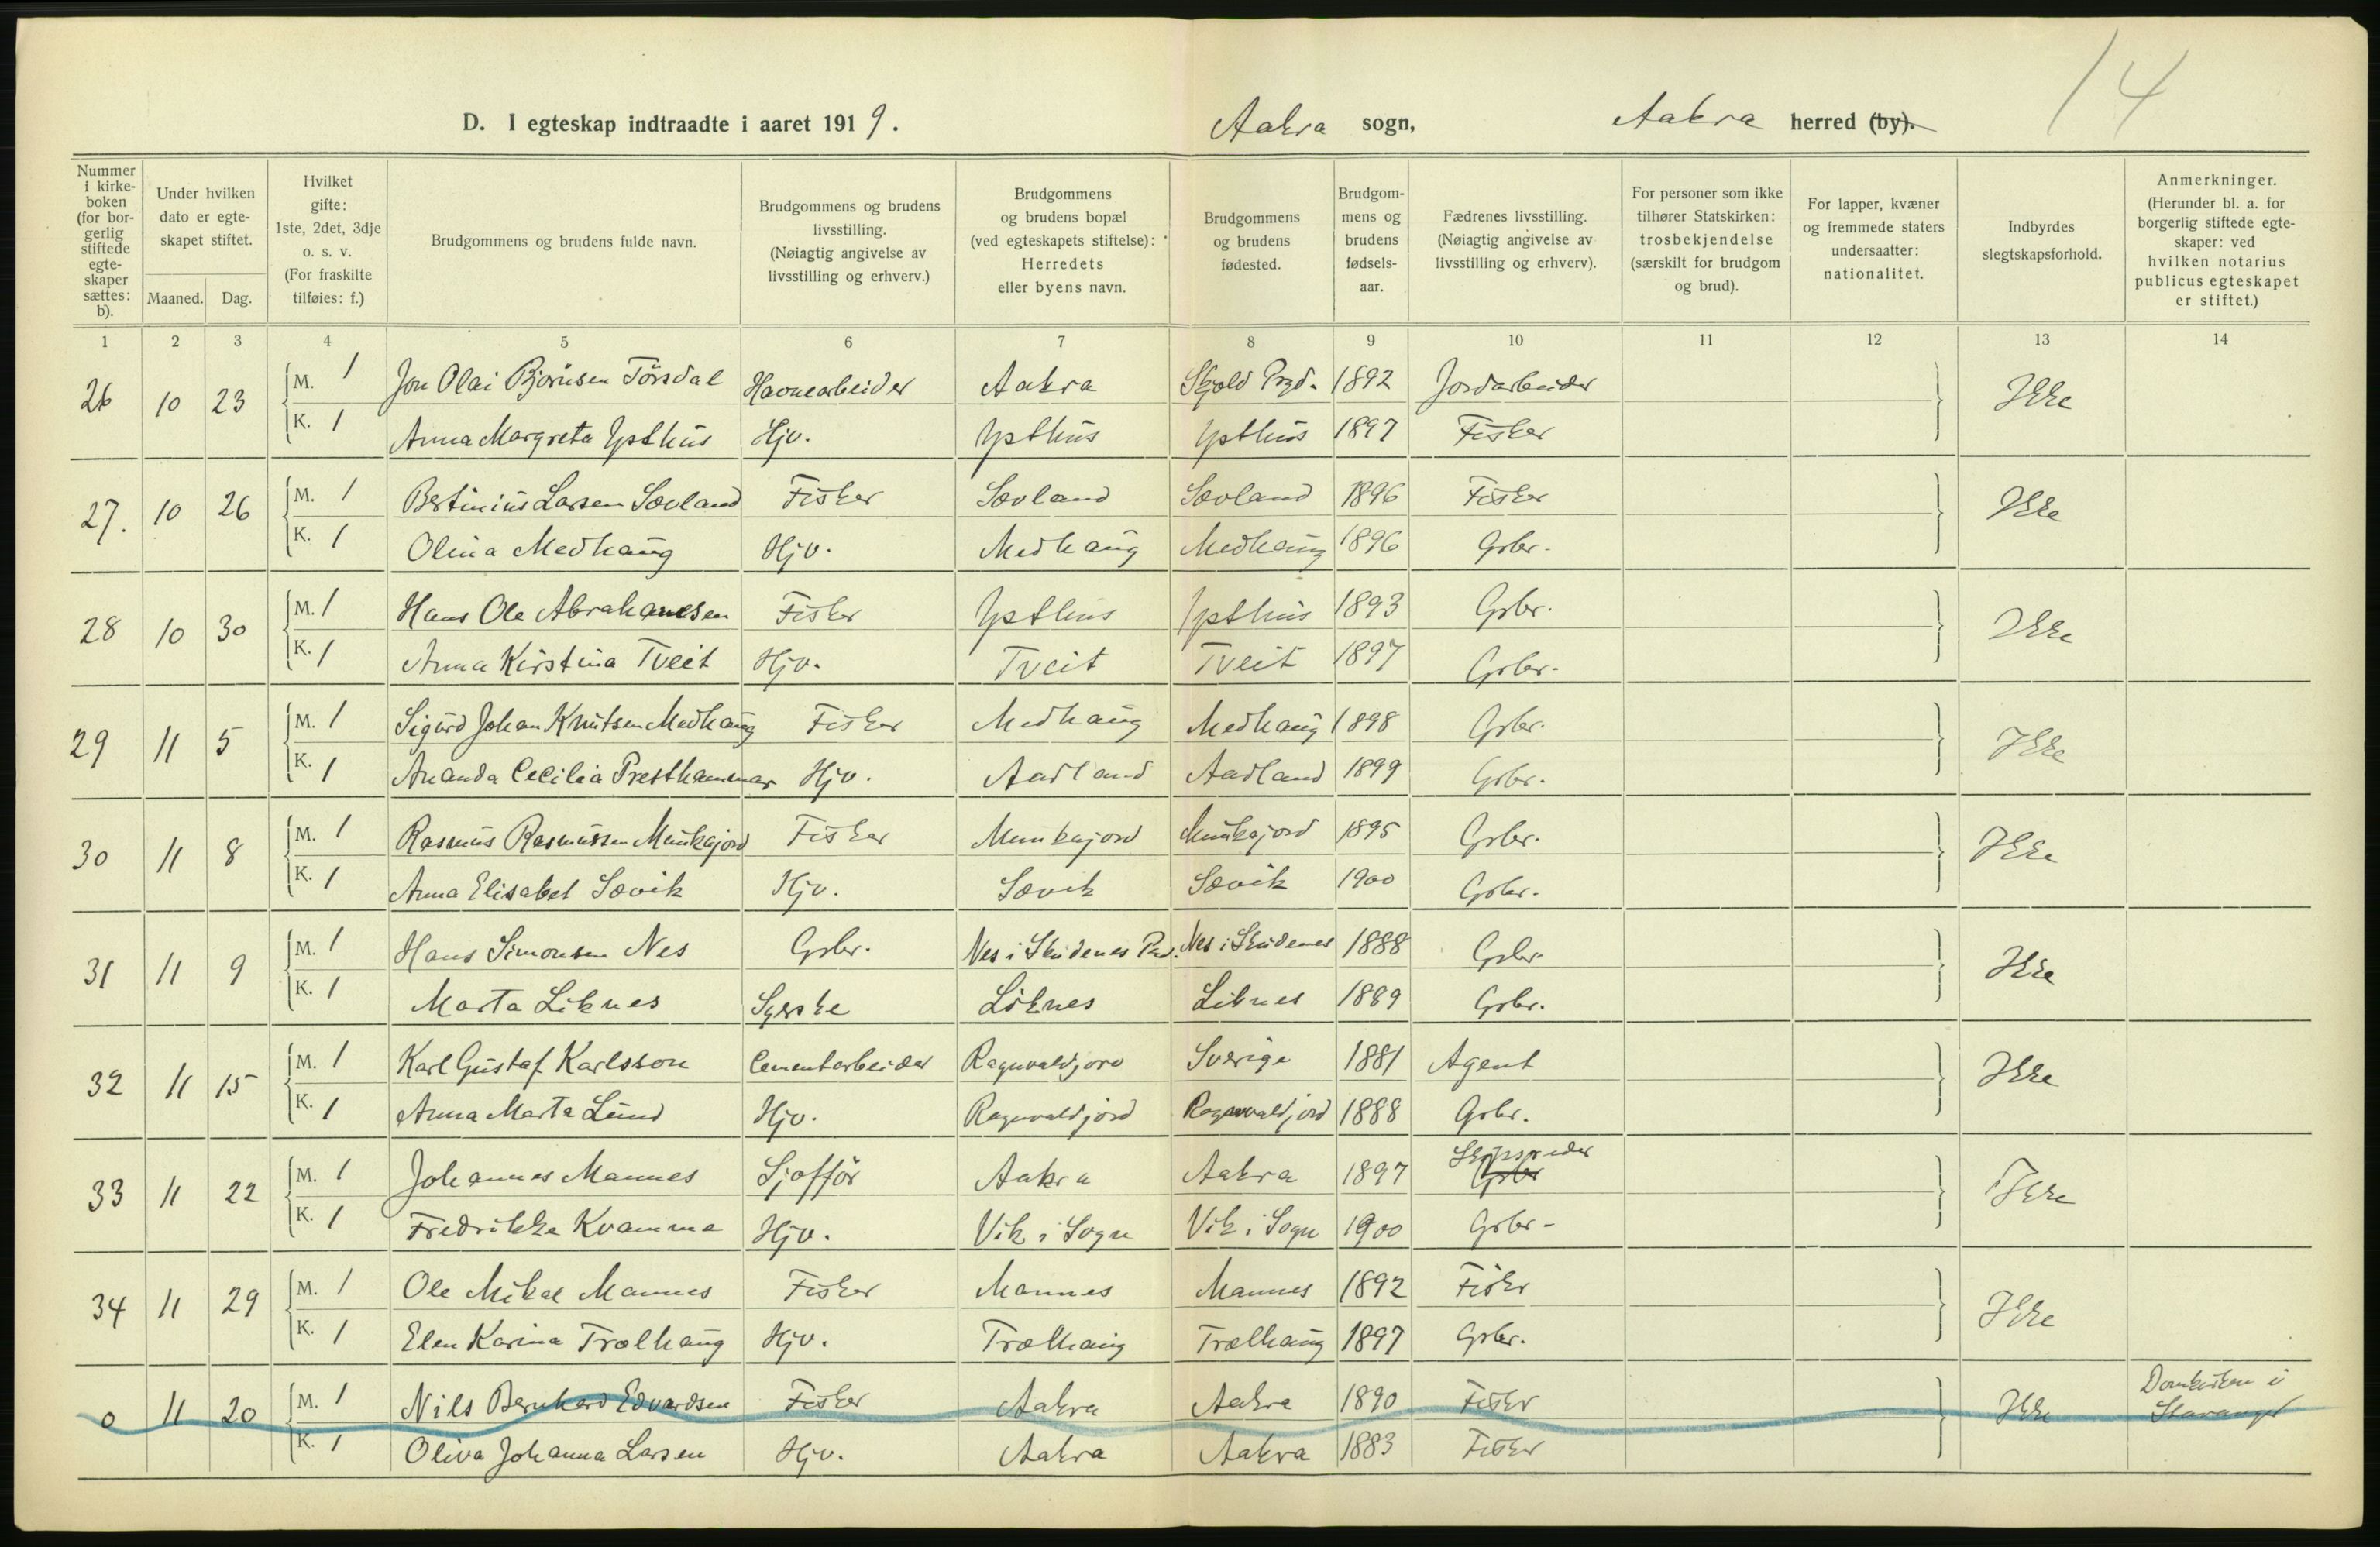 14
D. I egteskap indtraadte i aaret 1919. Aakra sogn, Aakra herred (by).
Nummer i kirkeboken (for borgerlig stiftede egteskaper sættes: b).
Under hvilken dato er egteskapet stiftet.
Maaned. Dag.
Hvilket gifte: 1ste, 2det, 3dje o. s. v. (For fraskilte tilføies: f.)
Brudgommens og brudens fulde navn.
Brudgommens og brudens livsstilling. (Nøiagtig angivelse av livsstilling og erhverv.)
Brudgommens og brudens bopæl (ved egteskapets stiftelse): Herredets eller byens navn.
Brudgommens og brudens fødested.
Brudgommens og brudens fødselsaar.
Fædrenes livsstilling. (Nøiagtig angivelse av livsstilling og erhverv).
For personer som ikke tilhører Statskirken: trosbekjendelse (særskilt for brudgom og brud).
For lapper, kvæner og fremmede staters undersaatter: nationalitet.
Indbyrdes slegtskapsforhold.
Anmerkninger. (Herunder bl. a. for borgerlig stiftede egteskaper: ved hvilken notarius publicus egteskapet er stiftet.)
1 2 3 4 5 6 7 8 9 10 11 12 13 14
26 10 23 M. 1 Jon Olai Bjørnsen Tørsdal Havnearbeider Aakra Skjold Prgd. 1892 Jordarbeider Ikke
K. 1 Anna Margreta Ypsthus Hjv. Ypsthus Ypsthus 1897 Fisker
27. 10 26 M. 1 Bertinius Larsen Sævland Fisker Sævland Sævland 1896 Fisker Ikke
K. 1 Olina Medhaug Hjv. Medhaug Medhaug 1896 Grbr.
28 10 30 M. 1 Hans Ole Abrahamsen Fisker Ypsthus Ypsthus 1893 Grbr. Ikke
K. 1 Anna Kirstina Tveit Hjv. Tveit Tveit 1897 Grbr.
29 11 5 M. 1 Sigurd Johan Knutsen Medhaug Fisker Medhaug Medhaug 1898 Grbr. Ikke
K. 1 Ananda Cecilia Presthammar Hjv. Aadland Aadland 1899 Grbr.
30 11 8 M. 1 Rasmus Rasmussen Munkajord Fisker Munkajord Munkajord 1895 Grbr. Ikke
K. 1 Anna Elisabet Sævik Hjv. Sævik Sævik 1900 Grbr.
31 11 9 M. 1 Hans Simonsen Nes Grbr. Nes i Skudenes Nes i Skudenes 1888 Grbr. Ikke
K. 1 Marta Liknes Syerske Liknes Liknes 1889 Grbr.
32 11 15 M. 1 Karl Gustaf Karlsson Cementarbeider Ragnvaldjord Sverige 1881 Agent Ikke
K. 1 Anna Marta Lund Hjv. Ragnvaldjord Ragnvaldjord 1888 Grbr.
33 11 22 M. 1 Johannes Mannes Sjoffør Aakra Aakra 1897 Skipsreder Grbr Ikke
K. 1 Fredrikke Kvamme Hjv. Vik i Sogn Vik i Sogn 1900 Grbr.
34 11 29 M. 1 Ole Mikal Mannes Fisker Mannes Mannes 1892 Fisker Ikke
K. 1 Elen Karina Trælhaug Hjv. Trælhaug Trælhaug 1897 Grbr.
0 11 20 M. 1 Nils Bernhard Edvardsen Fisker Aakra Aakra 1890 Fisker Ikke Domkirken i Stavanger
K. 1 Oliva Johanna Larsen Hjv. Aakra Aakra 1883 Fisker